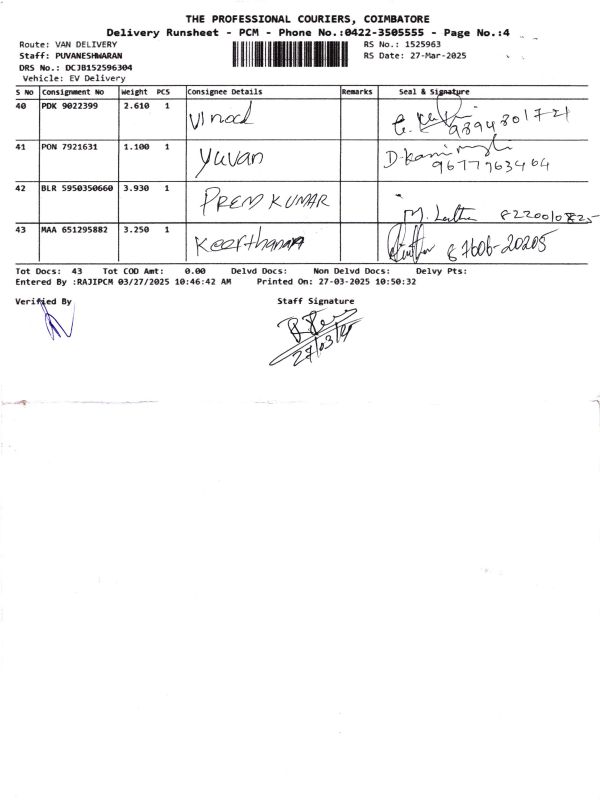 THE PROFESSIONAL COURIERS, COIMBATORE
Delivery Runsheet - PCM - Phone No.:0422-3505555 - Page No.:4
Route: VAN DELIVERY RS No.: 1525963
Staff: PUVANESHWARAN RS Date: 27-Mar-2025
DRS No.: DCJB152596304
Vehicle: EV Delivery
S No Consignment No Weight PCS Consignee Details Remarks Seal & Signature
40 PDK 9022399 2.610 1 Vinod 9894801721
41 PON 7921631 1.100 1 Yuvan 9677963464
42 BLR 5950350660 3.930 1 PREM KUMAR M. Latha
43 MAA 651295882 3.250 1 Keerthanaa 87606-20205
Tot Docs: 43 Tot COD Amt: 0.00 Delvd Docs: Non Delvd Docs: Delvy Pts:
Entered By :RAJIPCM 03/27/2025 10:46:42 AM Printed On: 27-03-2025 10:50:32
Verified By Staff Signature